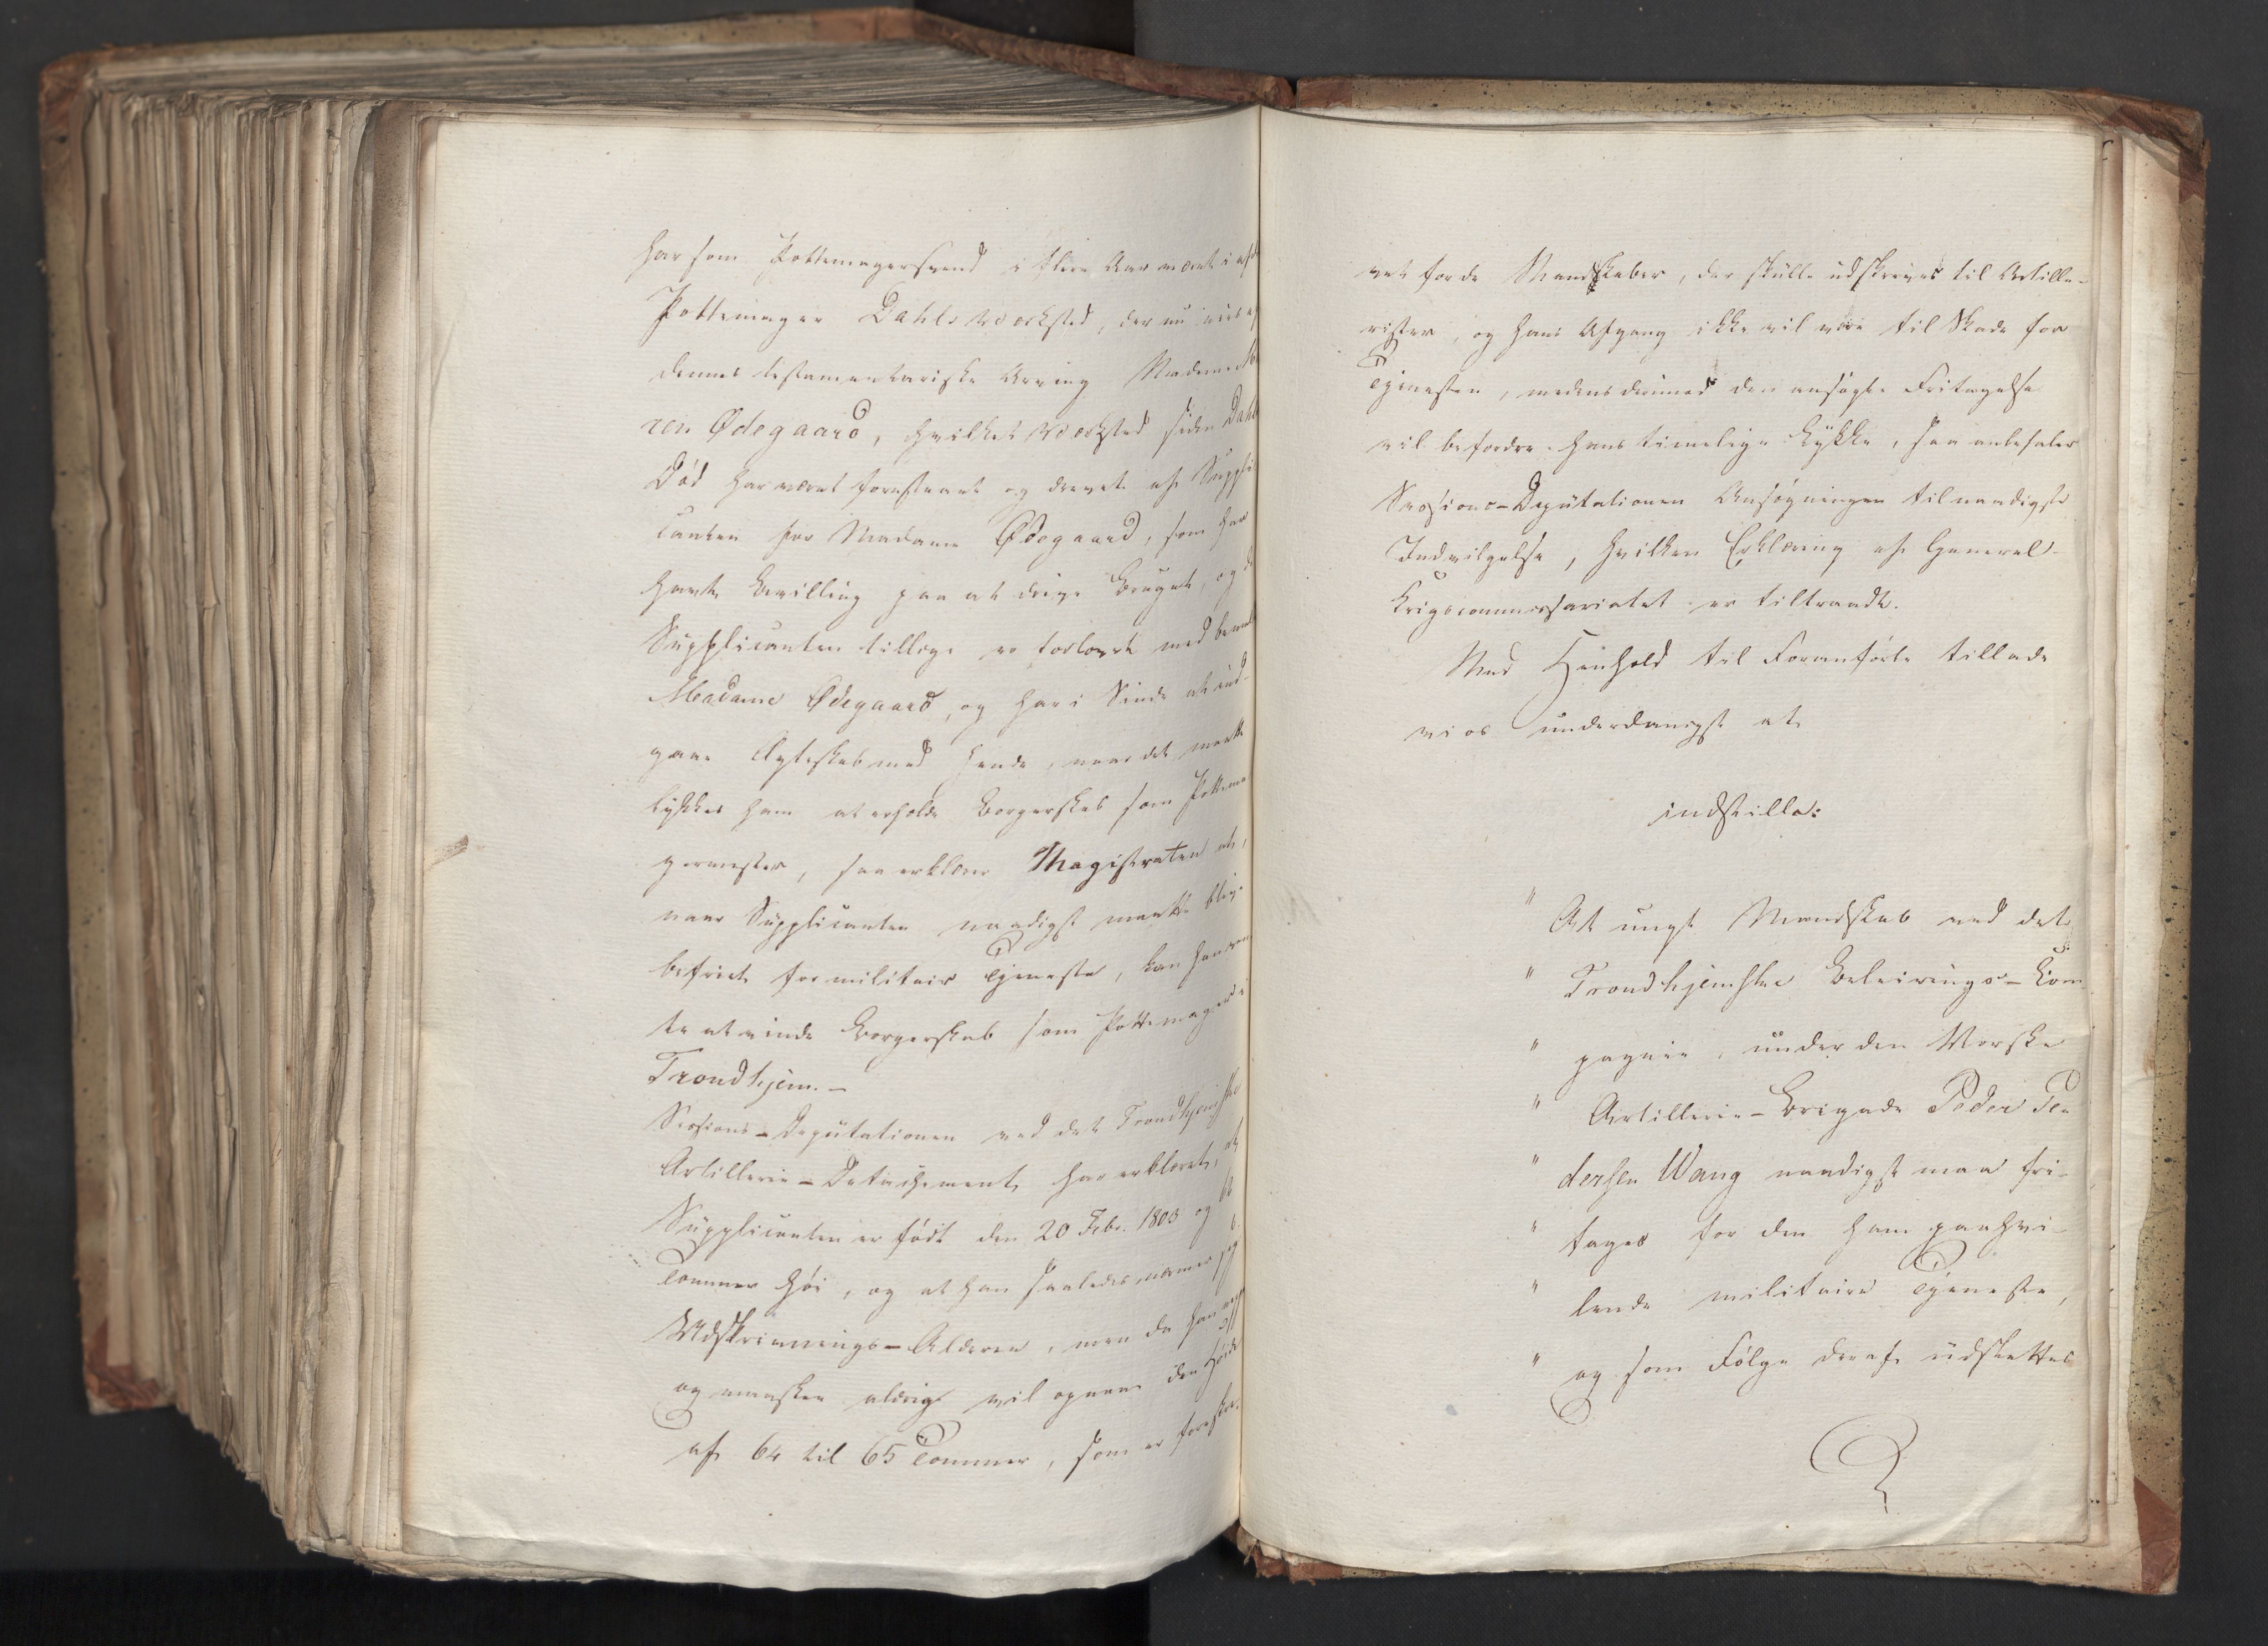 har som Pottemagersvend i flere Aar været i afd
Pottemager Dahls Værksted, der nu eies af
dennes testamentariske Arving Madame
ren Ødegaard, hvilket Værksted siden Dahls
Död har været forestaaet og drevet af Suppli
canten for Madame Ödegaard, som har
havt Bevilling paa at drive Bruget, og da
Supplicanten tillige er forlovet med bemel
Madame Ødegaard, og har i Sinde at ind-
gaae Ægteskab med hende, naar det maatte
lykkes ham at erholde Borgerskab som Pottema
germester, saa erklærer Magistraten at,
naar Supplicanten naadigst maatte blive
befriet for militair Tjeneste, kan han ven
te at vinde Borgerskab som Pottemager i
Trondhjem. -
Sessions-Deputationen ved det Trondhjemske
Artillerie-Detachement har erklæret, at
Supplicanten er födt den 20 Febr. 1803 og
Tommer höi, og at han saaledes nærmer sig
Udskrivnings-Alderen, men da han
og maaskee aldrig vil opnaae den Höide
af 64 til 65 Tommer, som er foreskre-
vet for de Mandskaber, der skulle udskrives til Artille-
rister, og hans Afgang ikke vil være til Skade for
Tjenesten, medens derimod den ansögte Fritagelse
vil befordre hans timelige Lykke, saa anbefaler
Sessions-Deputationen Ansögningen til naadigste
Indvilgelse, hvilken Erklæring af General-
Krigscommissariatet er tiltraadt.
Med Henhold til Foranförte tillade
vi os underdanigst at
indstille:
" At ungt Mandskab ved det
" Trondhjemske Beleirings-Com
" pagnie, under den Norske
" Artillerie-Brigade Peder Pe
" dersen Wang naadigst maa fri-
" tages for den ham paahvi-
" lende militaire Tjeneste,
" og som Fölge deraf udslettes